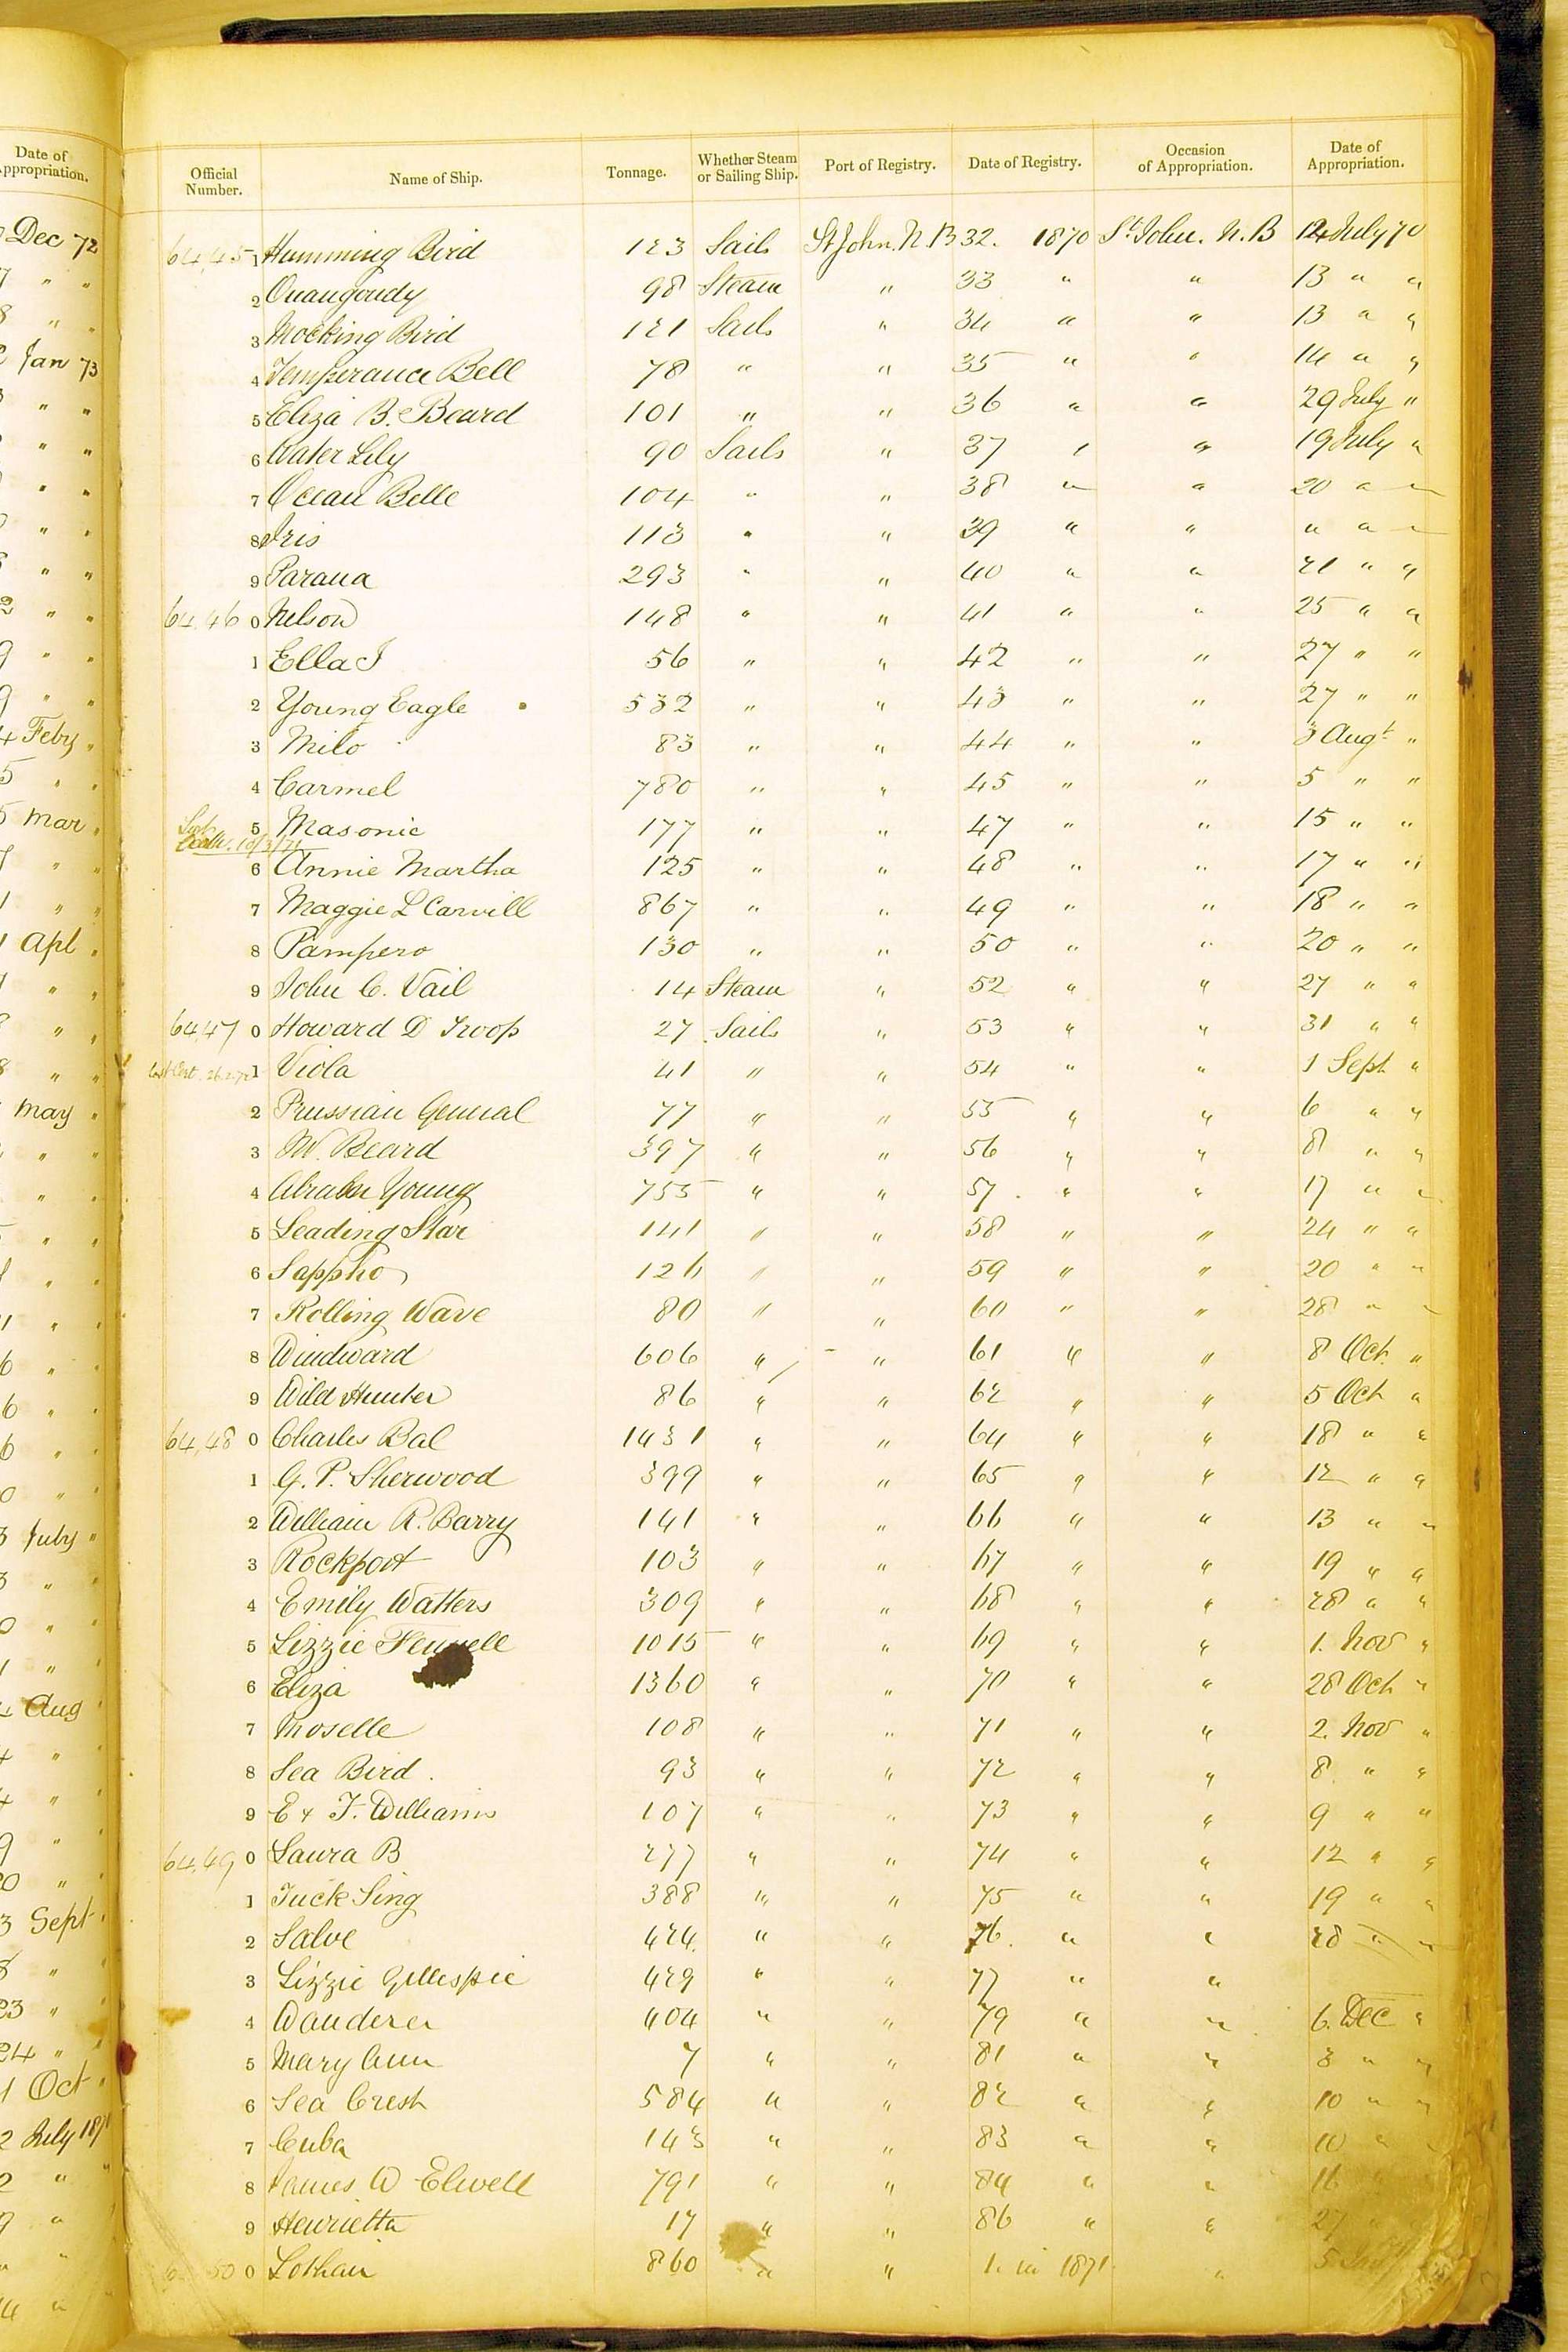 Date of Appropriation.
Dec 72
" "
" "
Jan 73
" "
" "
" "
" "
" "
" "
" "
" "
Feby "
" "
Mar "
" "
" "
Apl "
" "
" "
" "
May "
" "
" "
" "
" "
" "
" "
" "
" "
" "
July "
" "
" "
" "
Aug
" "
" "
" "
" "
Sept "
" "
23 "
24 "
1 Oct "
2 July 1871
" "
Official Number. Name of Ship. Tonnage. Whether Steam or Sailing Ship. Port of Registry. Date of Registry. Occasion of Appropriation. Date of Appropriation.
64,45 1 Humming Bird 123 Sails St John. N.B 32. 1870 St John. N.B 12 July 70
2 Ouangondy 98 Steam " 33 " " 13 " "
3 Mocking Bird 121 Sails " 34 " " 13 " "
4 Temperance Bell 78 " " 35 " " 14 " "
5 Eliza B. Beard 101 " " 36 " " 29 July "
6 Water Lily 90 Sails " 37 " " 19 July "
7 Ocean Belle 104 " " 38 " " 20 " "
8 Iris 113 " " 39 " " " " "
9 Parana 293 " " 40 " " 21 " "
64,46 0 Nelson 148 " " 41 " " 25 " "
1 Ella J 56 " " 42 " " 27 " "
2 Young Eagle 532 " " 43 " " 27 " "
3 Milo 83 " " 44 " " 3 Augt "
4 Carmel 780 " " 45 " " 5 " "
5 Masonic 177 " " 47 " " 15 " "
6 Annie Martha 125 " " 48 " " 17 " "
7 Maggie L Carvill 867 " " 49 " " 18 " "
8 Pampero 130 " " 50 " " 20 " "
9 John C. Vail 14 Steam " 52 " " 27 " "
64,47 0 Howard D Troop 27 Sails " 53 " " 31 " "
1 Viola 41 " " 54 " " 1 Sept "
2 Prussian General 77 " " 55 " " 6 " "
3 W. Beard 397 " " 56 " " 8 " "
4 Abram Young 755 " " 57 " " 17 " "
5 Leading Star 141 " " 58 " " 24 " "
6 Sappho 126 " " 59 " " 20 " "
7 Rolling Wave 80 " " 60 " " 28 " "
8 Windward 606 " " 61 " " 8 Oct. "
9 Wild Hunter 86 " " 62 " " 5 Oct "
64,48 0 Charles Bal 1431 " " 64 " " 18 " "
1 G. P. Sherwood 399 " " 65 " " 12 " "
2 William R. Barry 141 " " 66 " " 13 " "
3 Rockport 103 " " 67 " " 19 " "
4 Emily Watters 309 " " 68 " " 28 " "
5 Lizzie Fennell 1015 " " 69 " " 1. Nov "
6 Eliza 1360 " " 70 " " 28 Oct "
7 Moselle 108 " " 71 " " 2. Nov "
8 Sea Bird. 93 " " 72 " " 8 " "
9 E & F. Williams 107 " " 73 " " 9 " "
64,49 0 Laura B 277 " " 74 " " 12 " "
1 Tuck Sing 388 " " 75 " " 19 " "
2 Salve 424. " " 76. " " 28 " "
3 Lizzie Gillespie 429 " " 77 " "
4 Wanderer 404 " " 79 " " 6. Dec "
5 Mary Ann 7 " " 81 " " 3 " "
6 Sea Crest 584 " " 82 " " 10 " "
7 Cuba 143 " " 83 " " 10 " "
8 James W Elwell 791 " " 84 " " 16
9 Henrietta 17 " " 86 " " 27
50 0 Lothair 860 " " 1. in 1871 " 5